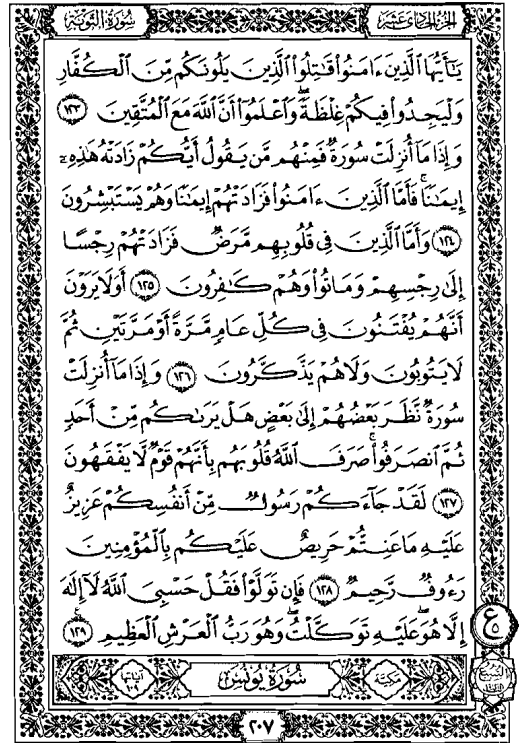 سُورَةُ التَّوْبَةِ
الجُزْءُ الحَادِي عَشَرَ
يَٰٓأَيُّهَا ٱلَّذِينَ ءَامَنُوا۟ قَٰتِلُوا۟ ٱلَّذِينَ يَلُونَكُم مِّنَ ٱلْكُفَّارِ
وَلْيَجِدُوا۟ فِيكُمْ غِلْظَةً ۚ وَٱعْلَمُوٓا۟ أَنَّ ٱللَّهَ مَعَ ٱلْمُتَّقِينَ ١٢٣
وَإِذَا مَآ أُنزِلَتْ سُورَةٌ فَمِنْهُم مَّن يَقُولُ أَيُّكُمْ زَادَتْهُ هَٰذِهِۦٓ
إِيمَٰنًا ۚ فَأَمَّا ٱلَّذِينَ ءَامَنُوا۟ فَزَادَتْهُمْ إِيمَٰنًا وَهُمْ يَسْتَبْشِرُونَ
١٢٤ وَأَمَّا ٱلَّذِينَ فِى قُلُوبِهِم مَّرَضٌ فَزَادَتْهُمْ رِجْسًا
إِلَىٰ رِجْسِهِمْ وَمَاتُوا۟ وَهُمْ كَٰفِرُونَ ١٢٥ أَوَلَا يَرَوْنَ
أَنَّهُمْ يُفْتَنُونَ فِى كُلِّ عَامٍ مَّرَّةً أَوْ مَرَّتَيْنِ ثُمَّ
لَا يَتُوبُونَ وَلَا هُمْ يَذَّكَّرُونَ ١٢٦ وَإِذَا مَآ أُنزِلَتْ
سُورَةٌ نَّظَرَ بَعْضُهُمْ إِلَىٰ بَعْضٍ هَلْ يَرَىٰكُم مِّنْ أَحَدٍ
ثُمَّ ٱنصَرَفُوا۟ ۚ صَرَفَ ٱللَّهُ قُلُوبَهُم بِأَنَّهُمْ قَوْمٌ لَّا يَفْقَهُونَ
١٢٧ لَقَدْ جَآءَكُمْ رَسُولٌ مِّنْ أَنفُسِكُمْ عَزِيزٌ
عَلَيْهِ مَا عَنِتُّمْ حَرِيصٌ عَلَيْكُم بِٱلْمُؤْمِنِينَ
رَءُوفٌ رَّحِيمٌ ١٢٨ فَإِن تَوَلَّوْا۟ فَقُلْ حَسْبِىَ ٱللَّهُ لَآ إِلَٰهَ
إِلَّا هُوَ ۖ عَلَيْهِ تَوَكَّلْتُ ۖ وَهُوَ رَبُّ ٱلْعَرْشِ ٱلْعَظِيمِ ١٢٩
مَكِّيَّة
سُورَةُ يُونُسَ
آيَاتُهَا ١٠٩
٢٠٧